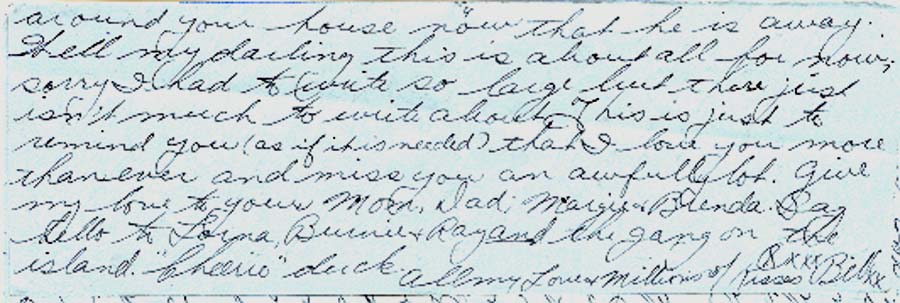 around your house now that he is away.
Well my darling this is about all for now;
sorry I had to write so large but there just
isn't much to write about. This is just to
remind you (as if it is needed) that I love you more
than ever and miss you an awfully lot. Give
my love to yours Mom, Dad, Margie & Brenda. Say
hello to Lorna, Bunnie & Ray and the gang on the
island. "Cheerio" duck.
All my Love & Millions of Kisses Bill xx